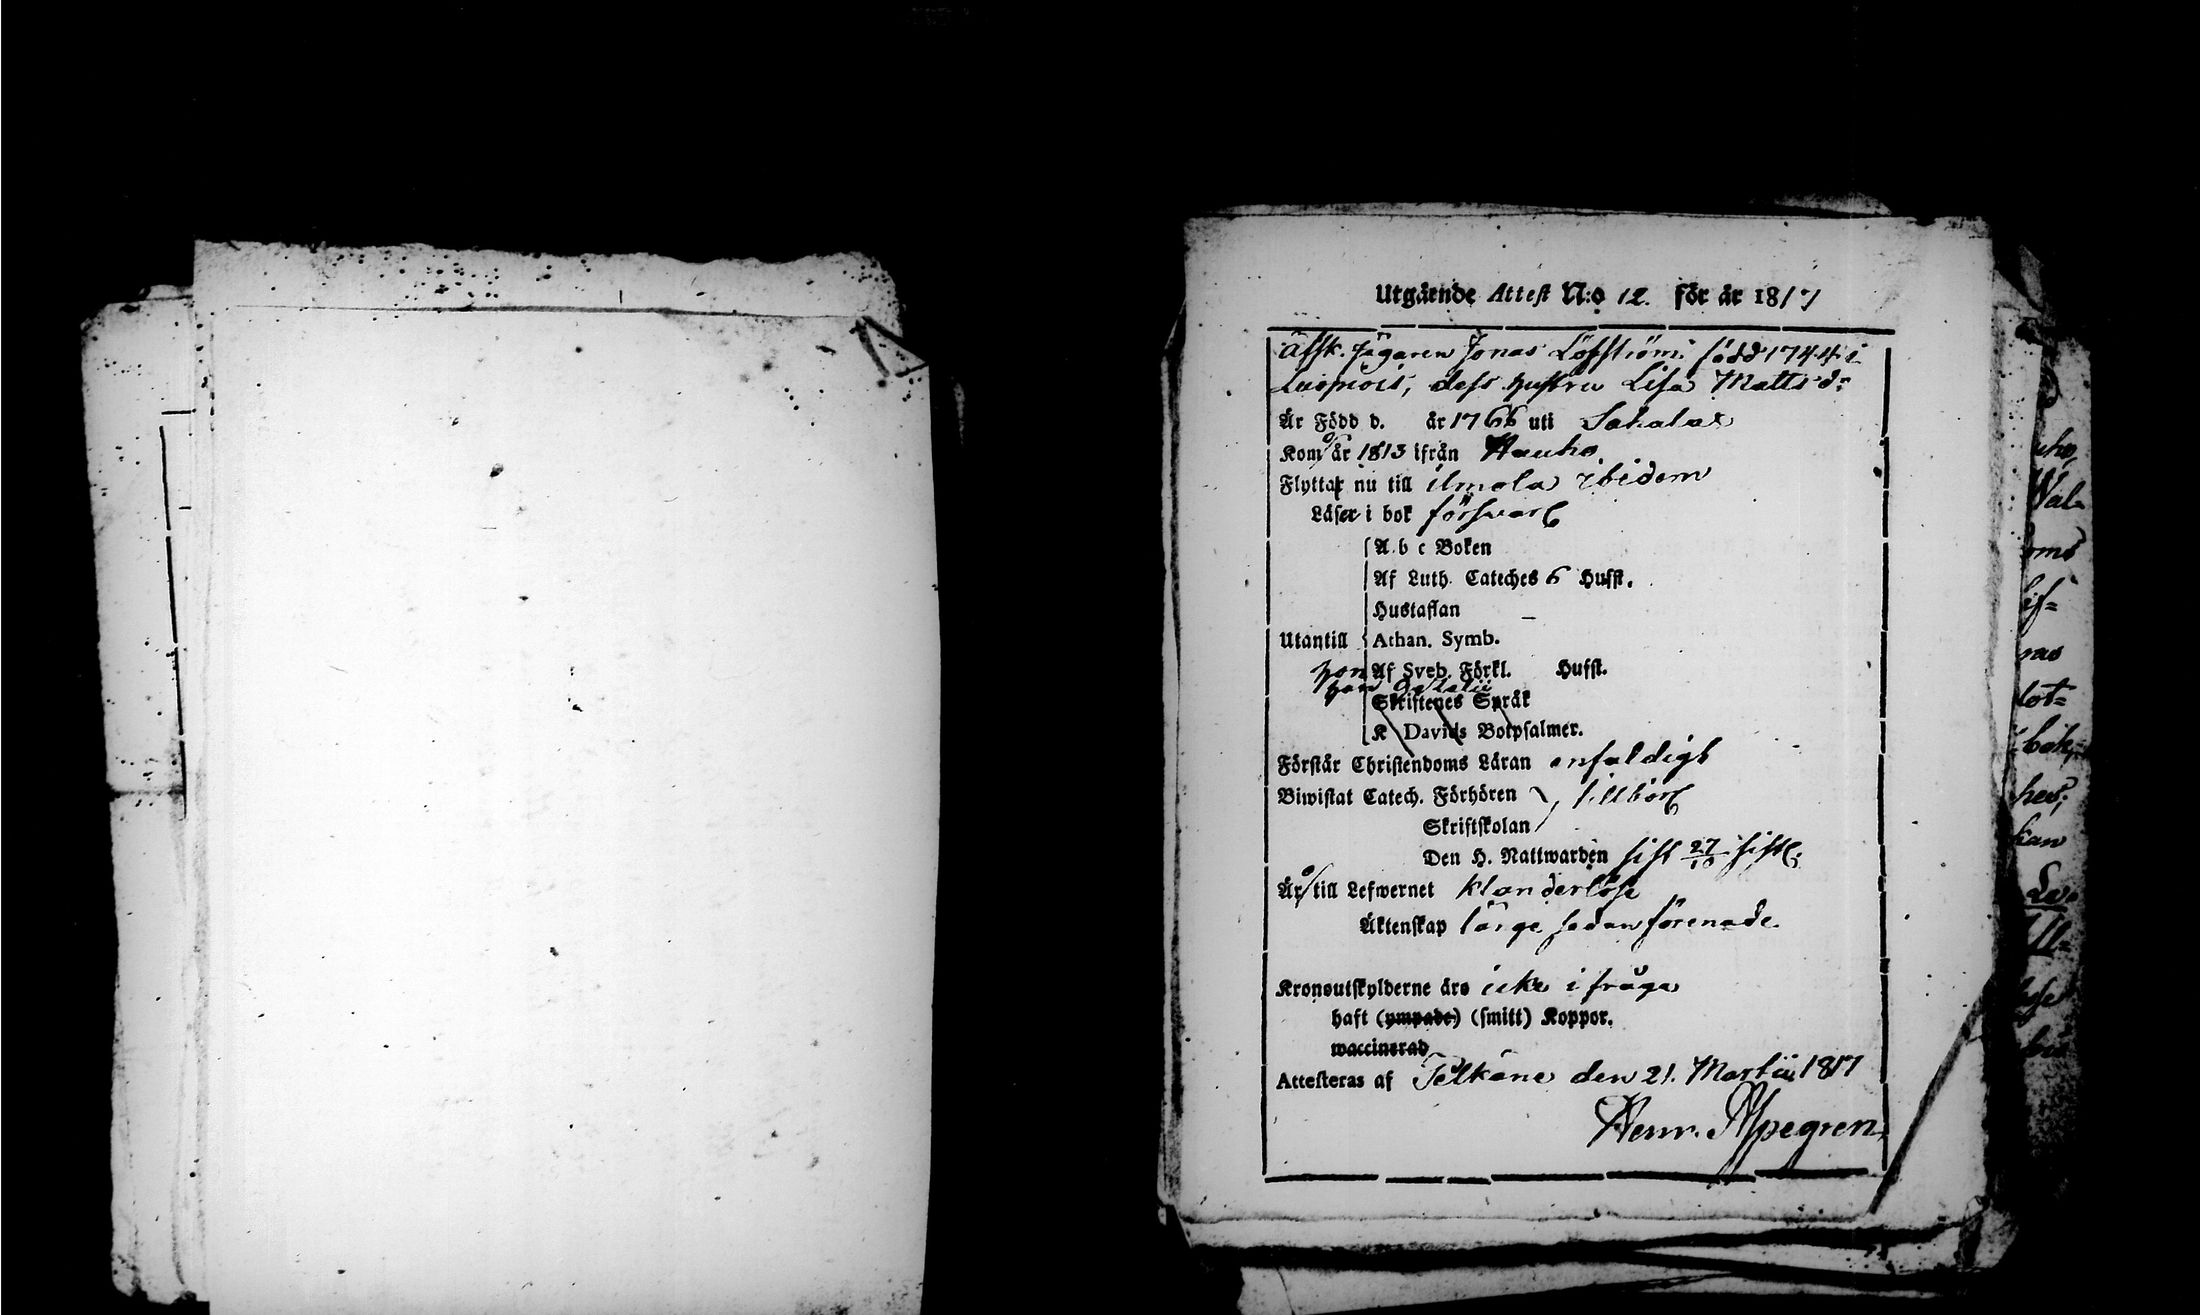 Utgående Attest N:o 12. för år 1817
Afsk. Jägaren Jonas Löfström född 1744 i
Luopiois, dess hustru Lisa Mattsd:
Är Född d. år 1766 uti Sahalax
Kom år 1813 ifrån Hauho
Flyttar nu till ilmola ibidem
Läser i bok försvarl
A b c Boken
Af Luth. Cateches 6 Hufst.
Hustaflan
Utantill Athan. Symb.
hon Af Sveb. Förkl. Hufst.
Skriftenes Språk
K Davids Botpsalmer.
Förstår Christendoms Läran enfaldigt
Biwistat Catech. Förhören tillbörl
Skriftskolan
Den H. Nattwarden sist 27/10 sistl:
Är till Lefwernet klanderlöse
Äktenskap länge sedan förenade.
Kronoutskylderne äro icke i fråga
haft (ympade) (smitt) Koppor.
waccinerad
Attesteras af Pelkäne den 21. Martii 1817
Henr. Aspegren